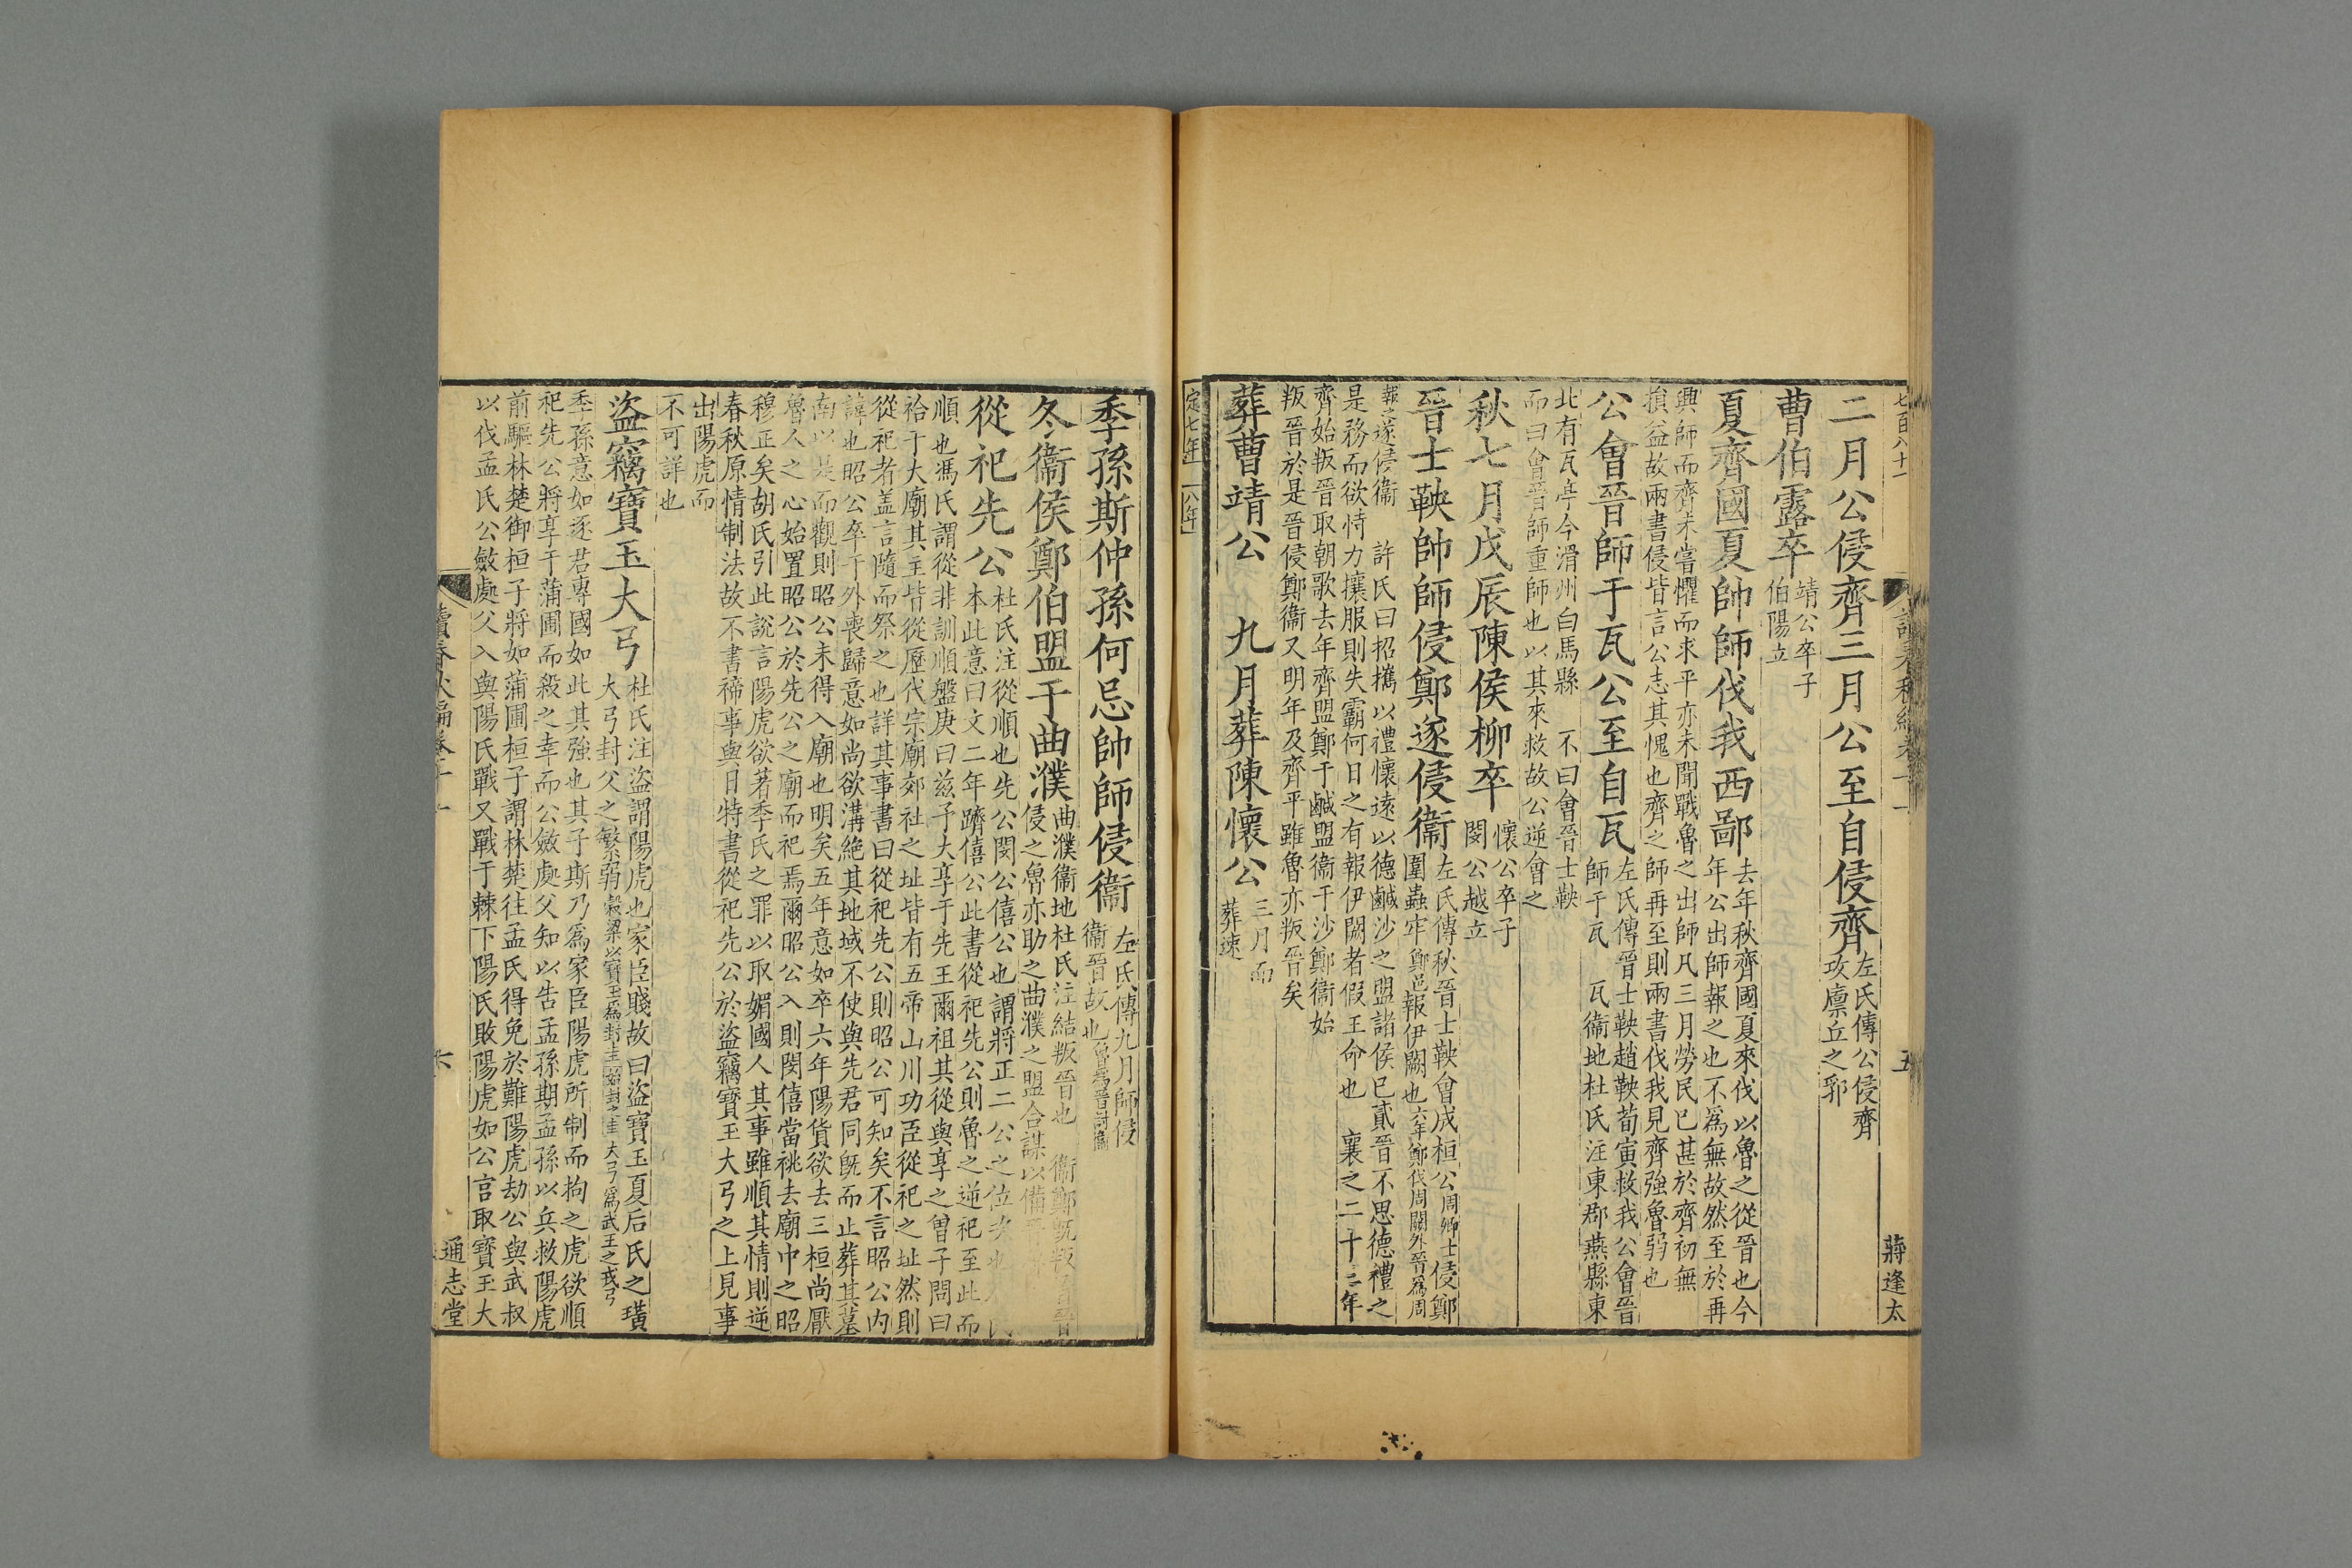 二月公侵齊三月公至自侵齊左氏傳公侵齊
攻廩丘之郛
曹伯露卒靖公卒子
伯陽立
夏齊國夏帥師伐我西鄙去年秋齊國夏來伐以魯之從晉也今
年公出師報之也不爲無故然至於再
興師而齊未嘗懼而求平亦未聞戰魯之出師凡三月勞民已甚於齊初無
損益故兩書侵皆言公志其愧也齊之師再至則兩書伐我見齊強魯弱也
公會晉師于瓦公至自瓦左氏傳晉士鞅趙鞅荀寅救我公會晉
師于瓦 瓦衞地杜氏注東郡燕縣東
北有瓦亭今滑州白馬縣 不曰會晉士鞅
而曰會晉師重師也以其來救故公逆會之
秋七月戊辰陳侯柳卒懷公卒子
閔公越立
晉士鞅帥師侵鄭遂侵衞左氏傳秋晉士鞅會成桓公周卿士侵鄭
圍蟲牢鄭邑報伊闕也六年鄭伐周闕外晉爲周
報之遂侵衞 許氏曰招攜以禮懷遠以德鹹沙之盟諸侯已貳晉不思德禮之
是務而欲恃力攘服則失霸何日之有報伊闕者假王命也 襄之二十二年
齊始叛晉取朝歌去年齊盟鄭于鹹盟衞于沙鄭衞始
叛晉於是晉侵鄭衞又明年及齊平雖魯亦叛晉矣
葬曹靖公 九月葬陳懷公三月而
葬速
定七年 八年
蔣逢太
五
季孫斯仲孫何忌帥師侵衞左氏傳九月師侵
衞晉故也魯爲晉討衞
冬衞侯鄭伯盟于曲濮曲濮衞地杜氏注結叛晉也 衞鄭旣叛晉
侵之魯亦助之曲濮之盟合謀以備
從祀先公杜氏注從順也先公閔公僖公也謂將正二公之位次也
本此意曰文二年躋僖公此書從祀先公則魯之逆祀至此而
順也馮氏謂從非訓順盤庚曰兹予大享于先王爾祖其從與享之曾子問曰
祫于大廟其主皆從歷代宗廟郊社之址皆有五帝山川功臣從祀之址然則
從祀者盖言隨而祭之也詳其事書曰從祀先公則昭公可知矣不言昭公内
諱也昭公卒于外喪歸意如尚欲溝絶其地域不使與先君同旣而止葬其墓
南以是而觀則昭公未得入廟也明矣五年意如卒六年陽貨欲去三桓尚厭
魯人之心始置昭公於先公之廟而祀焉爾昭公入則閔僖當祧去廟中之昭
穆正矣胡氏引此說言陽虎欲著季氏之罪以取媚國人其事雖順其情則逆
春秋原情制法故不書禘事與日特書從祀先公於盜竊寶玉大弓之上見事
出陽虎而
不可詳也
盜竊寶玉大弓杜氏注盜謂陽虎也家臣賤故曰盜寶玉夏后氏之璜
大弓封父之繁弱穀梁以寶玉爲封圭始封之圭大弓爲武王之戎弓
季孫意如逐君專國如此其強也其子斯乃爲家臣陽虎所制而拘之虎欲順
祀先公將享于蒲圃而殺之幸而公斂處父知以告孟孫期孟孫以兵救陽虎
前驅林楚御桓子將如蒲圃桓子謂林楚往孟氏得免於難陽虎劫公與武叔
以伐孟氏公斂處父入與陽氏戰又戰于棘下陽氏敗陽虎如公宫取寶玉大
通志堂